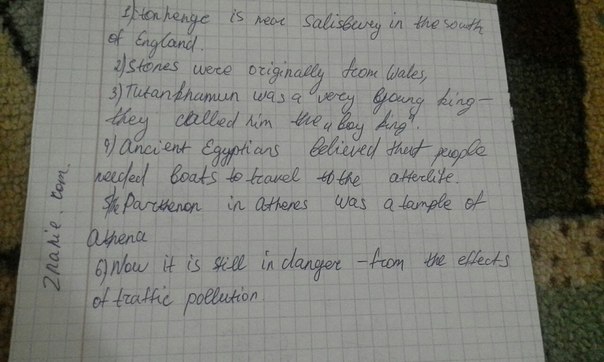 1) Stonhenge is near Salisbury in the south
of England.
2) Stones were originally from Wales,
3) Tutankhamun was a very young king –
they called him the „boy king".
4) Ancient Egyptians believed that people
needed boats to travel to the afterlife.
5) The Parthenon in Athenes was a tample of
Athena
6) Now it is still in danger – from the effects
of traffic pollution.
Znanie.com.